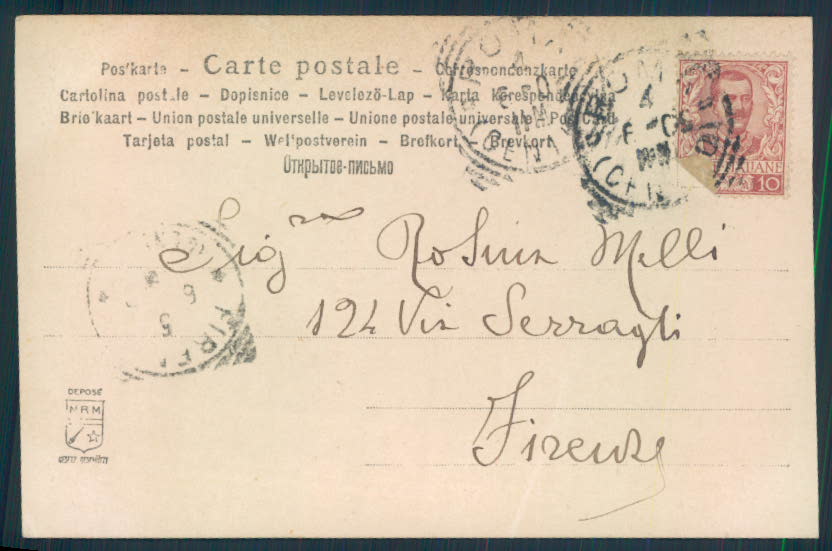 Pos'karte – Carte postale – Correspondenzkarte
Cartolina postale – Dopisnice – Levelező-Lap – Karta Korespondencyjna
Briefkaart – Union postale universelle – Unione postale universale – Post Card
Tarjeta postal – Weltpostverein – Brefkort – Brevkort
Открытое-письмо
ROMA
10
Sigra Rosina Melli
124 Via Serragli
Firenze
DEPOSÉ
NRM